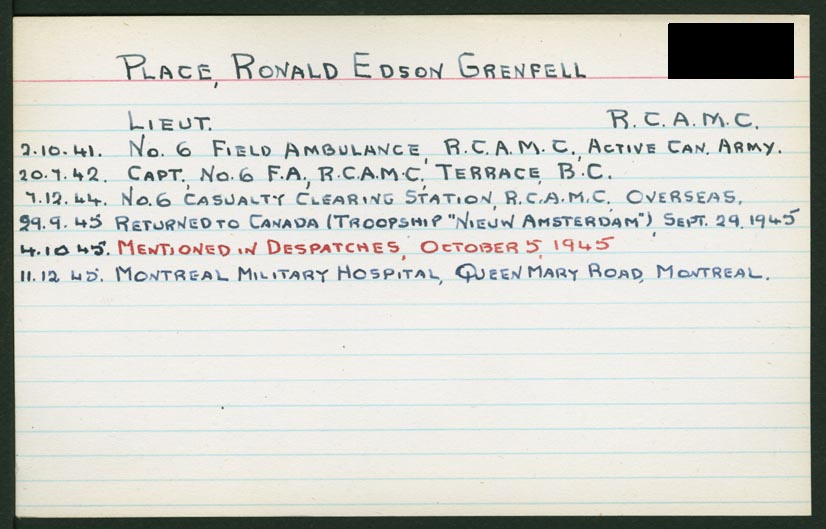 PLACE, RONALD EDSON GRENFELL
LIEUT. R.C.A.M.C.
2.10.41. No. 6 FIELD AMBULANCE, R.C.A.M.C., ACTIVE CAN. ARMY.
20.7.42. CAPT, No.6 F.A., R.C.A.M.C, TERRACE, B.C.
7.12.44. No.6 CASUALTY CLEARING STATION, R.C.A.M.C, OVERSEAS,
29.9.45 RETURNED TO CANADA (TROOPSHIP "NIEUW AMSTERDAM"), SEPT. 29, 1945
4.10 45. MENTIONED IN DESPATCHES, OCTOBER 5, 1945
11.12 45. MONTREAL MILITARY HOSPITAL, QUEEN MARY ROAD, MONTREAL.